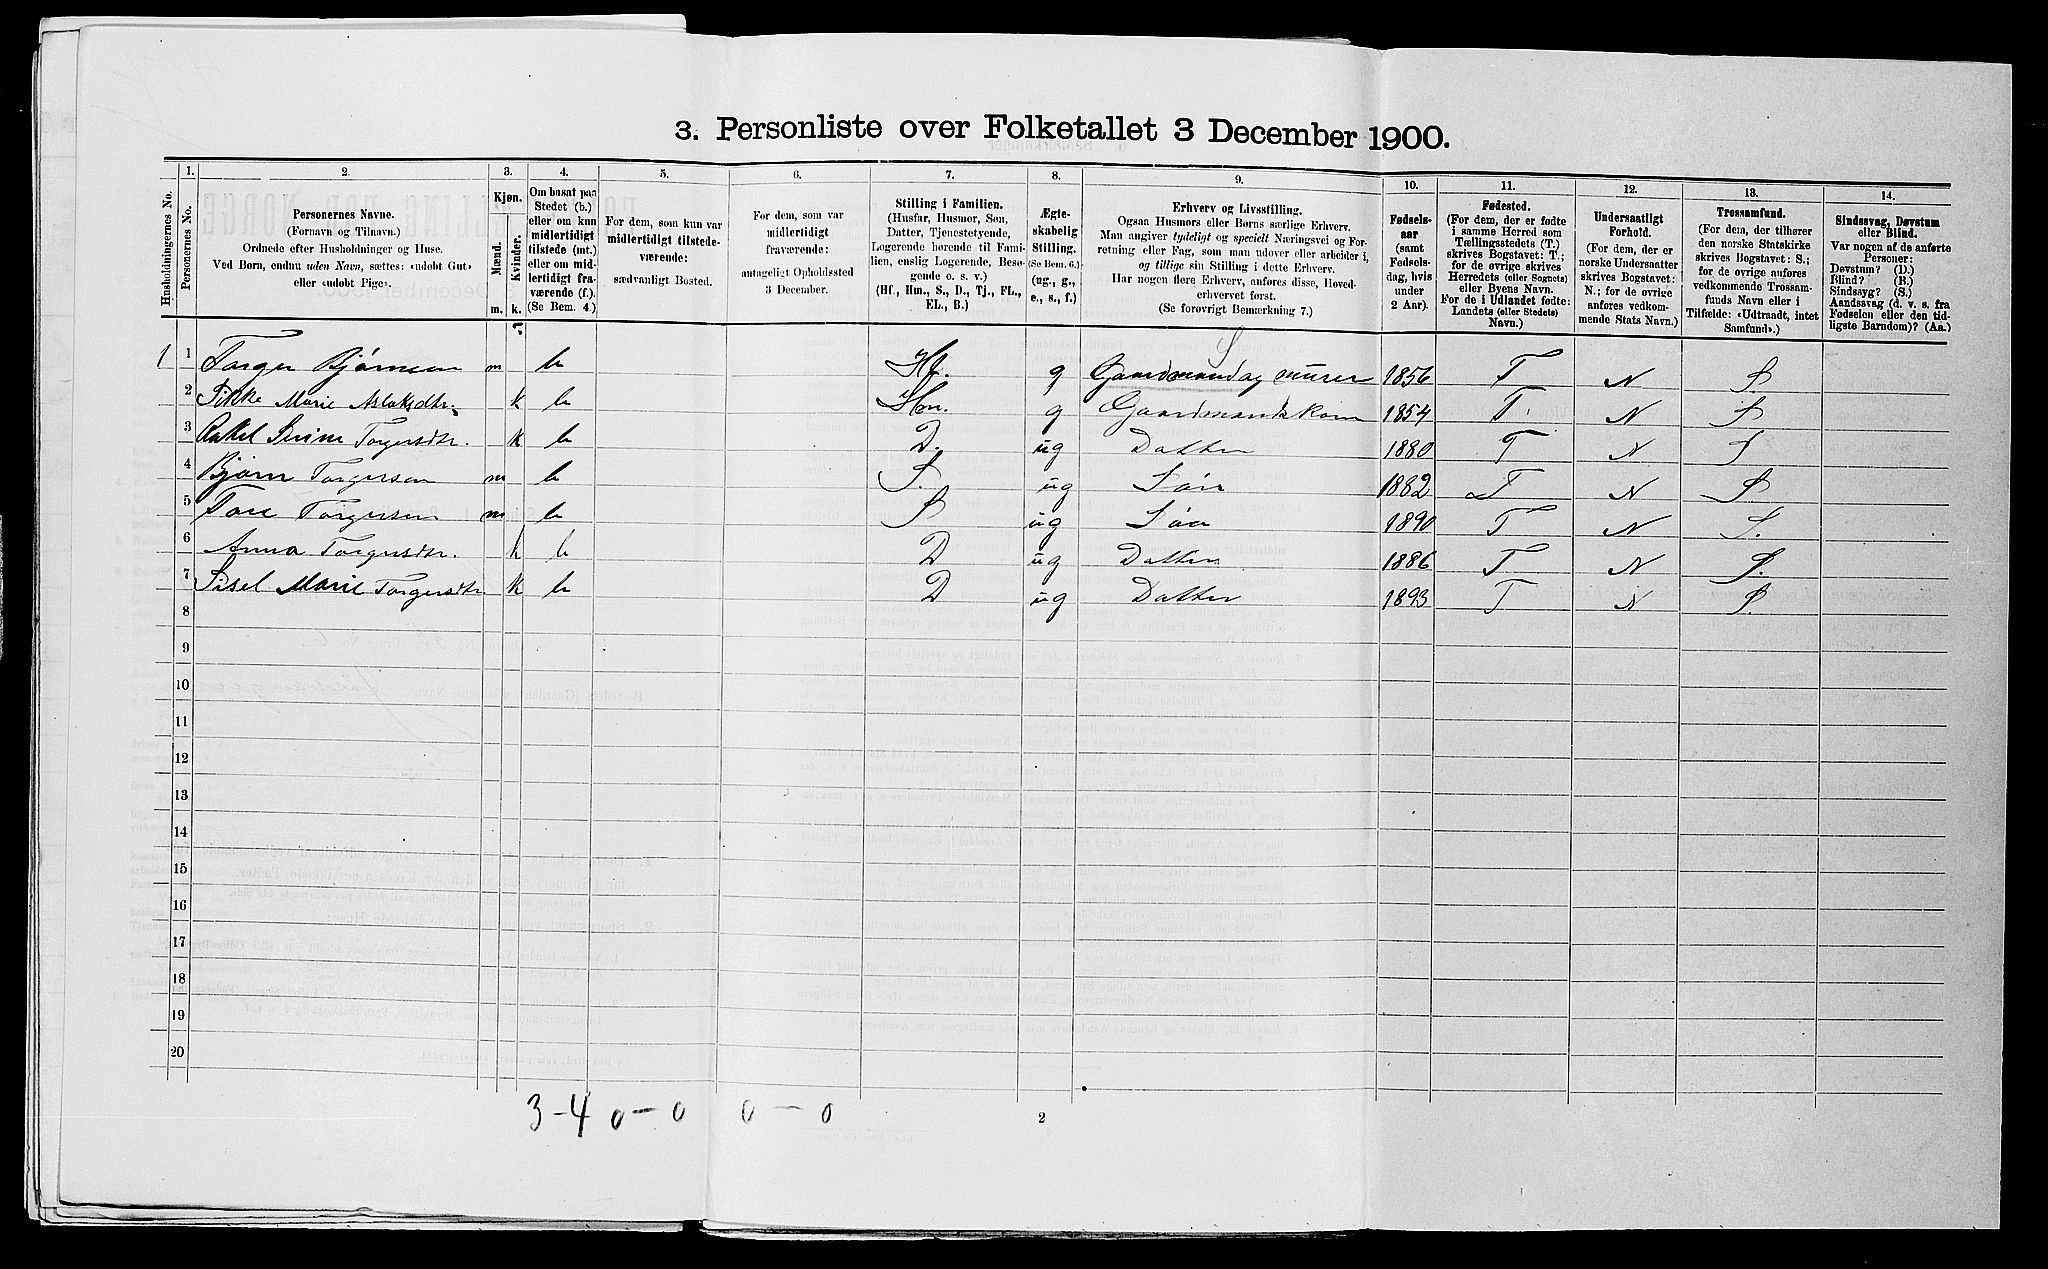 3. Personliste over Folketallet 3 December 1900.
Husholdningernes No.
1.
Personernes No.
2.
Personernes Navne.
(Fornavn og Tilnavn.)
Ordnede efter Husholdninger og Huse.
Ved Børn, endnu uden Navn, sættes: «udøbt Gut»
eller «udøbt Pige».
3.
Kjøn.
Mænd.
Kvinder.
m.
k.
4.
Om bosat paa
Stedet (b.)
eller om kun
midlertidigt
tilstede (mt.)
eller om mid-
lertidigt fra-
værende (f.).
(Se Bem. 4.)
5.
For dem, som kun var
midlertidigt tilstede-
værende:
sædvanligt Bosted.
6.
For dem, som var
midlertidigt
fraværende:
antageligt Opholdssted
3 December.
7.
Stilling i Familien.
(Husfar, Husmor, Søn,
Datter, Tjenestetyende,
Logerende hørende til Fami-
lien, enslig Logerende, Besø-
gende o. s. v.)
(Hf., Hm., S., D., Tj., FL.,
EL., B.)
8.
Ægte-
skabelig
Stilling.
(Se Bem. 6.)
(ug., g.,
e., s., f.)
9.
Erhverv og Livsstilling.
Ogsaa Husmors eller Børns særlige Erhverv.
Man angiver tydeligt og specielt Næringsvei og For-
retning eller Fag, som man udover eller arbeider i,
og tillige sin Stilling i dette Erhverv.
Har nogen flere Erhverv, anføres disse, Hoved-
erhvervet først.
(Se forøvrigt Bemærkning 7.)
10.
Fødsels-
aar
(samt
Fødsels-
dag, hvis
under
2 Aar).
11.
Fødested.
(For dem, der er fødte
i samme Herred som
Tællingsstedets (T.)
skrives Bogstavet: T.;
for de øvrige skrives
Herredets (eller Sognets)
eller Byens Navn.
For de i Udlandet fødte:
Landets (eller Stedets)
Navn.)
12.
Undersaatligt
Forhold.
(For dem, der er
norske Undersaatter
skrives Bogstavet:
N.; for de øvrige
anføres vedkom-
mende Stats Navn.)
13.
Trossamfund.
(For dem, der tilhører
den norske Statskirke
skrives Bogstavet: S.;
for de øvrige anføres
vedkommende Trossam-
funds Navn eller i
Tilfælde: «Udtraadt, intet
Samfund».)
14.
Sindssvag, Døvstum
eller Blind.
Var nogen af de anførte
Personer:
Døvstum? (D.)
Blind? (B.)
Sindssyg? (S.)
Aandssvag (d. v. s. fra
Fødselen eller den tid-
ligste Barndom)? (Aa.)
1 1 Torger Bjørnsen m b Hf. g Gaardmand og murer 1856 T N S
2 Sikke Marie Aslaksdtr. k b Hm. g Gaardmandskone 1854 T. N S
3 Rakel Serine Torgersdtr. k b D. ug Datter 1880 T N S
4 Bjørn Torgersen m b S. ug Søn 1882 T N S
5 Tore Torgersen m b S ug Søn 1890 T N S.
6 Anna Torgersdtr. k b D ug Datter 1886 T N S.
7 Sisel Marie Torgersdtr k b D ug Datter 1893 T N S.
8
9
10
11
12
13
14
15
16
17
18
19
20
3 - 4 0 - 0 0 - 0
2